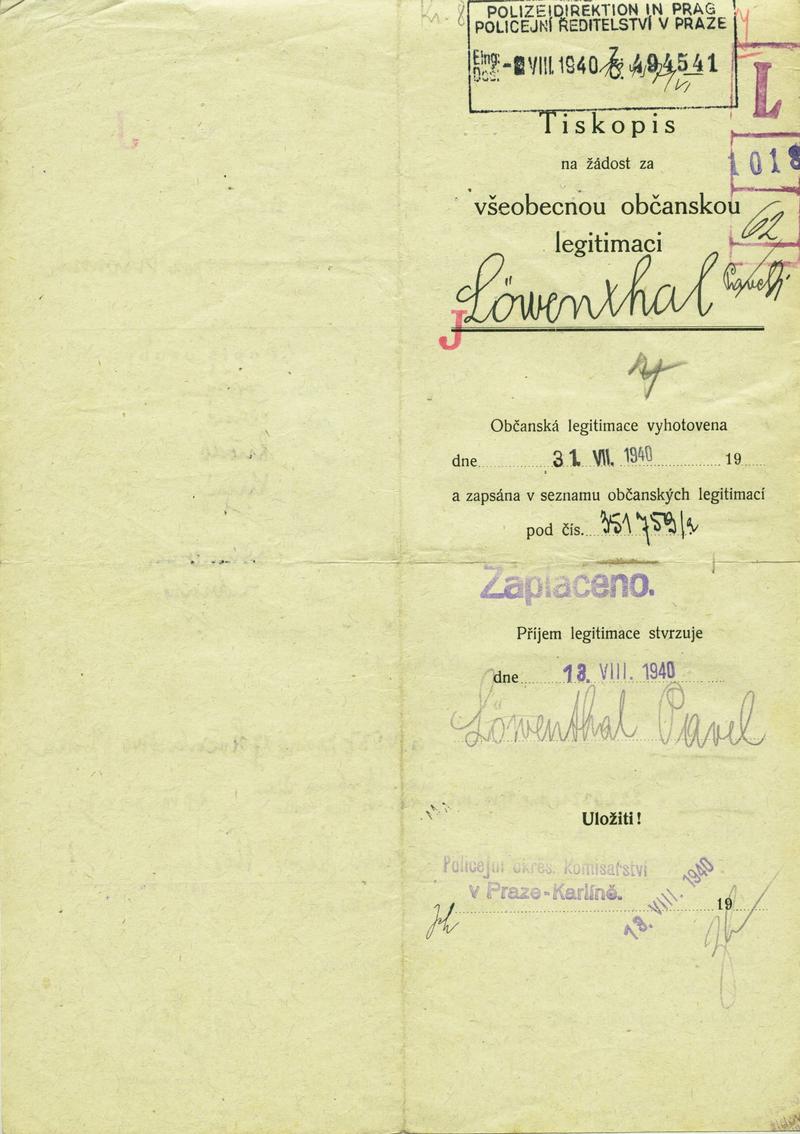 POLIZEIDIREKTION IN PRAG
POLICEJNÍ ŘEDITELSTVÍ V PRAZE
Eing:
Doš:
VIII. 1940
494541
L
Tiskopis
na žádost za
1018
všeobecnou občanskou
62
legitimaci
Löwenthal Pavel
J
Občanská legitimace vyhotovena
dne 31. VII. 1940 19
a zapsána v seznamu občanských legitimací
pod čís. 351759/a
Zaplaceno.
Příjem legitimace stvrzuje
dne 13. VIII. 1940
Löwenthal Pavel
Uložiti!
Policejní okres. komisařství
v Praze-Karlíně.
13. VIII. 1940
19